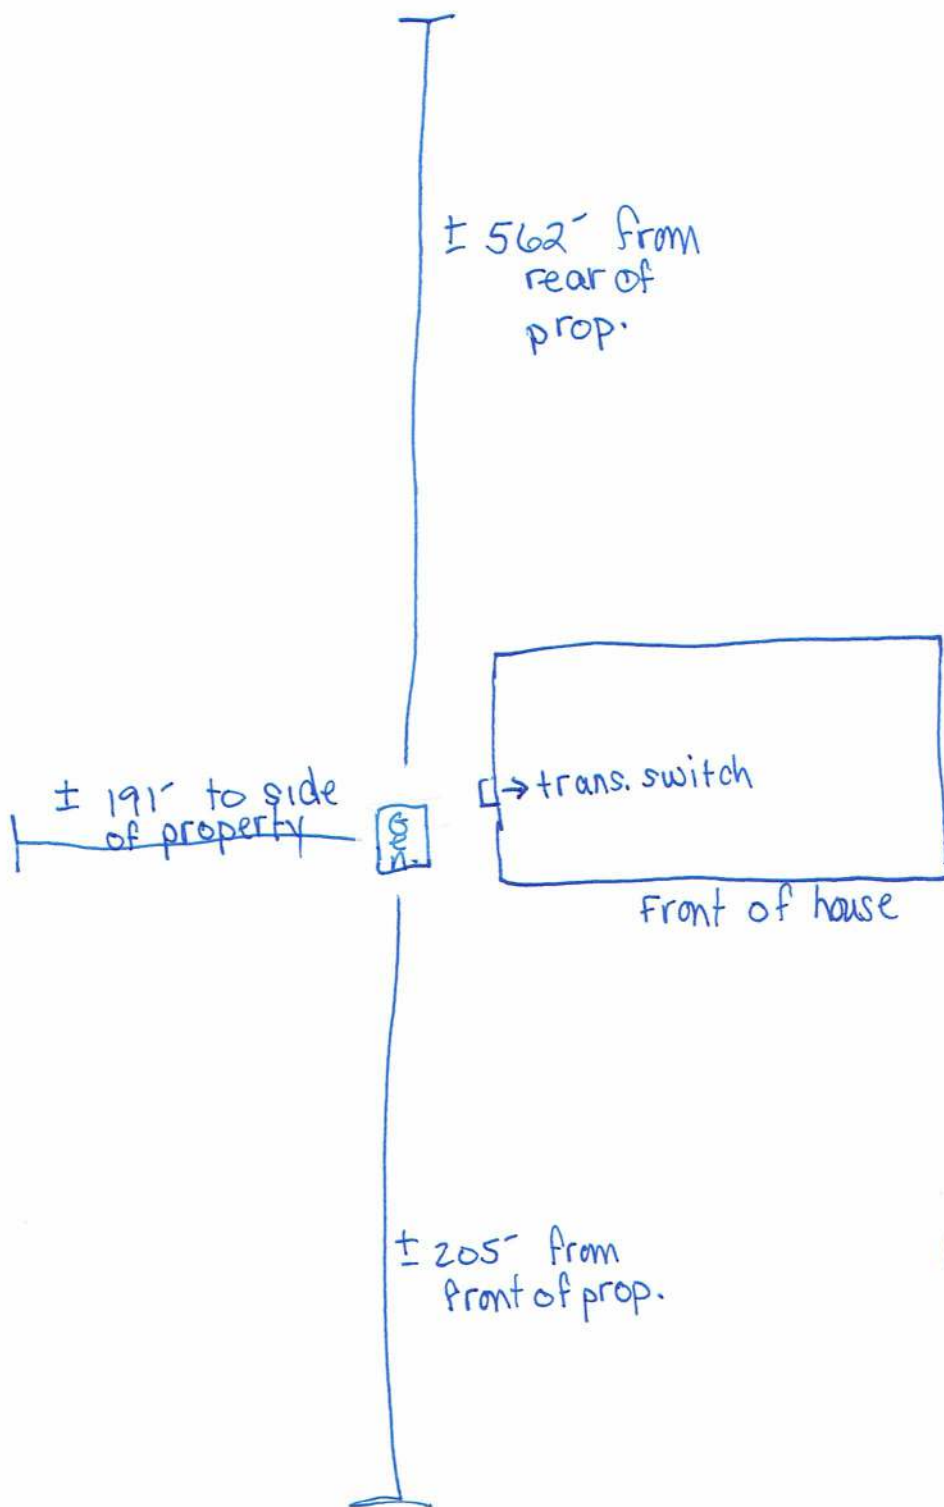 ± 562' from
rear of
prop.
± 191' to side
of property
Gen.
trans. switch
Front of house
± 205' from
front of prop.